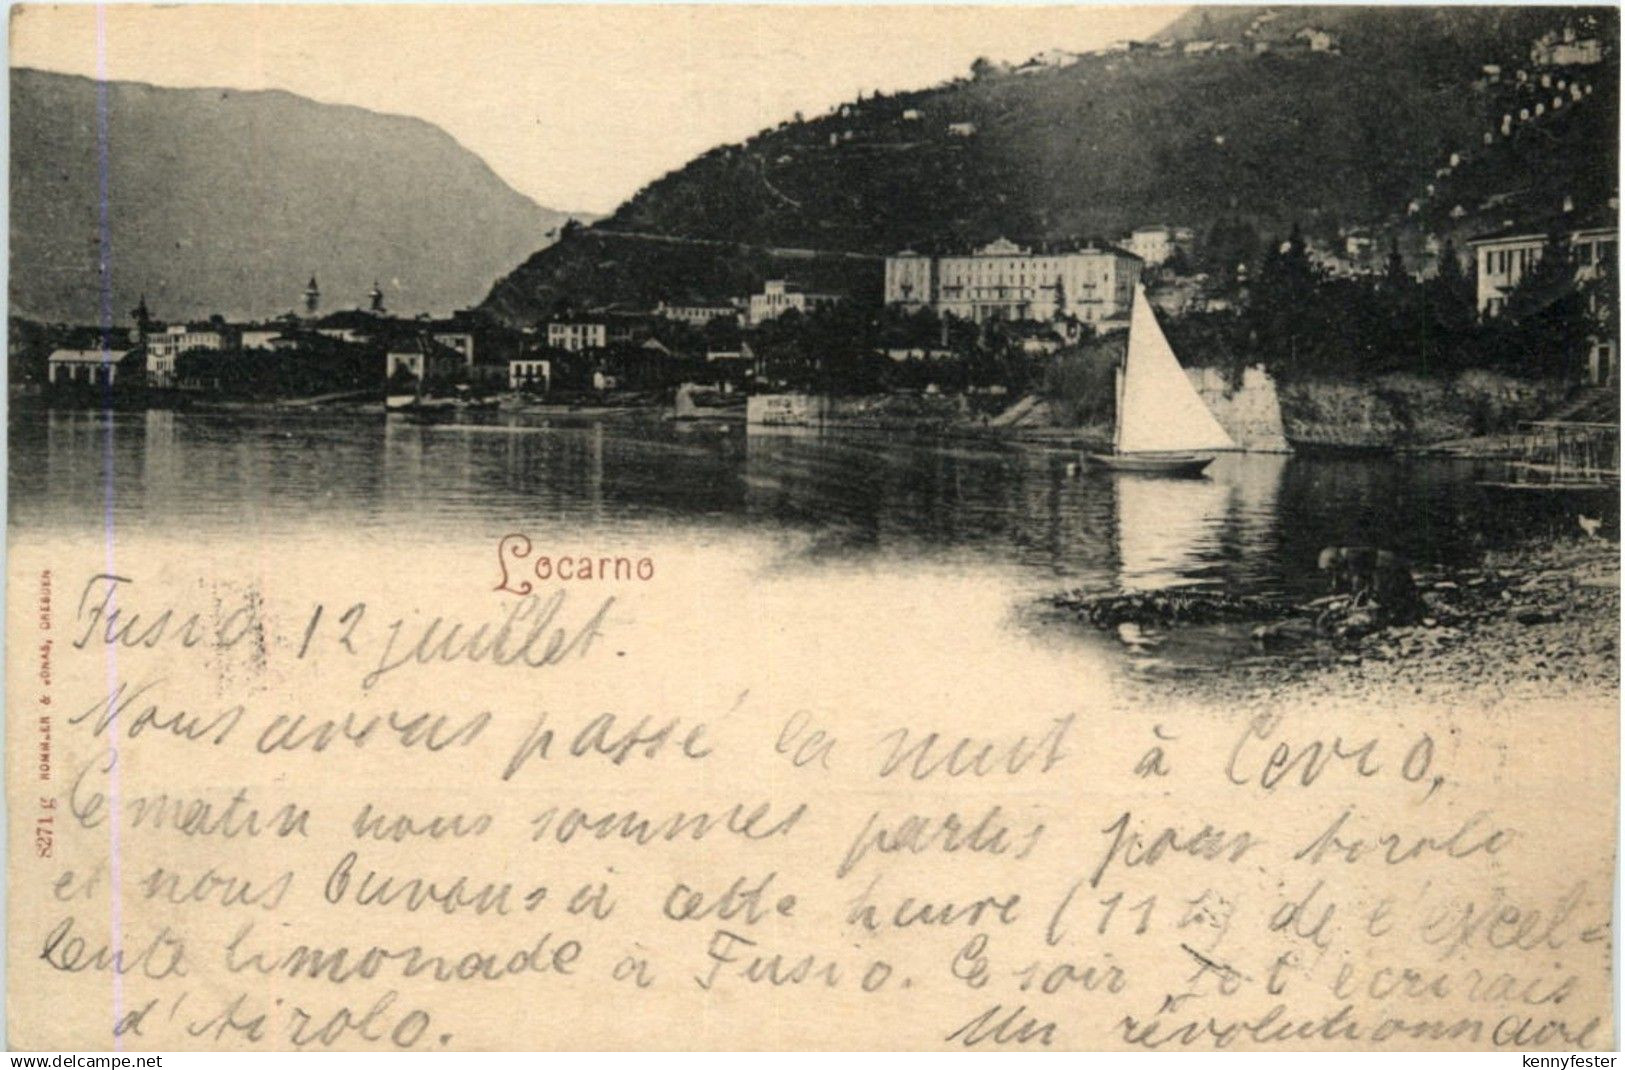 Locarno
8271 g ROMMLER & JONAS, DRESDEN
Fusio 12 juillet.
Nous avons passé la nuit à Cevio,
Ce matin nous sommes partis pour Airolo
et nous buvons à cette heure (11 h) de l'excel=
lente limonade à Fusio. Ce soir je t'écrirais
d'Airolo.
Un révolutionnaire
www.delcampe.net
kennyfester